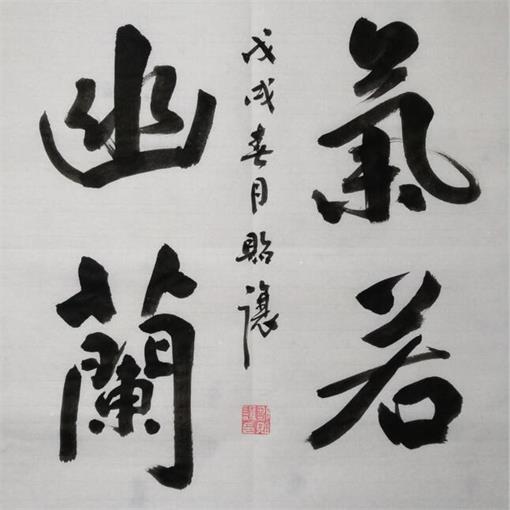 氣若
幽蘭
戊戌春月貽讓